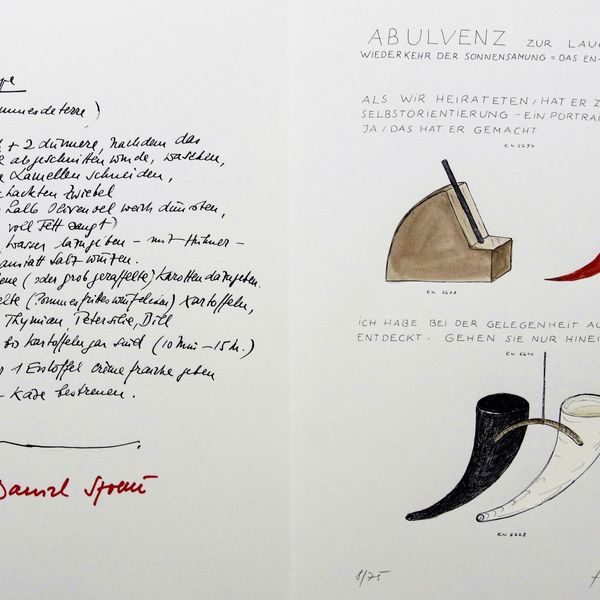 mmesdeterre)
+ 2 dünnere, nachdem das
abgeschnitten wurde, waschen,
Lamellen schneiden,
hackten Zwiebel
halb Olivenoel weich dünsten,
voll Fett saugt)
wasser dazugeben – mit Hühner-
anstatt Salz würzen.
ene (oder grob geraffelte) Karotten dazugeben.
elte (Pommes frites würfelchen) Kartoffeln,
Thymian, Petersilie, Dill
bis Kartoffeln gar sind (10 Min – 15 M.)
1 Esslöffel crème fraiche geben
Käse bestreuen.
Daniel Spoerri
ABULVENZ ZUR LAUG
WIEDERKEHR DER SONNENSAMUNG = DAS EN-
ALS WIR HEIRATETEN / HAT ER Z
SELBSTORIENTIERUNG – EIN PORTRAI
JA / DAS HAT ER GEMACHT
ICH HABE BEI DER GELEGENHEIT AU
ENTDECKT. GEHEN SIE NUR HINEI
EN 6628
8/75